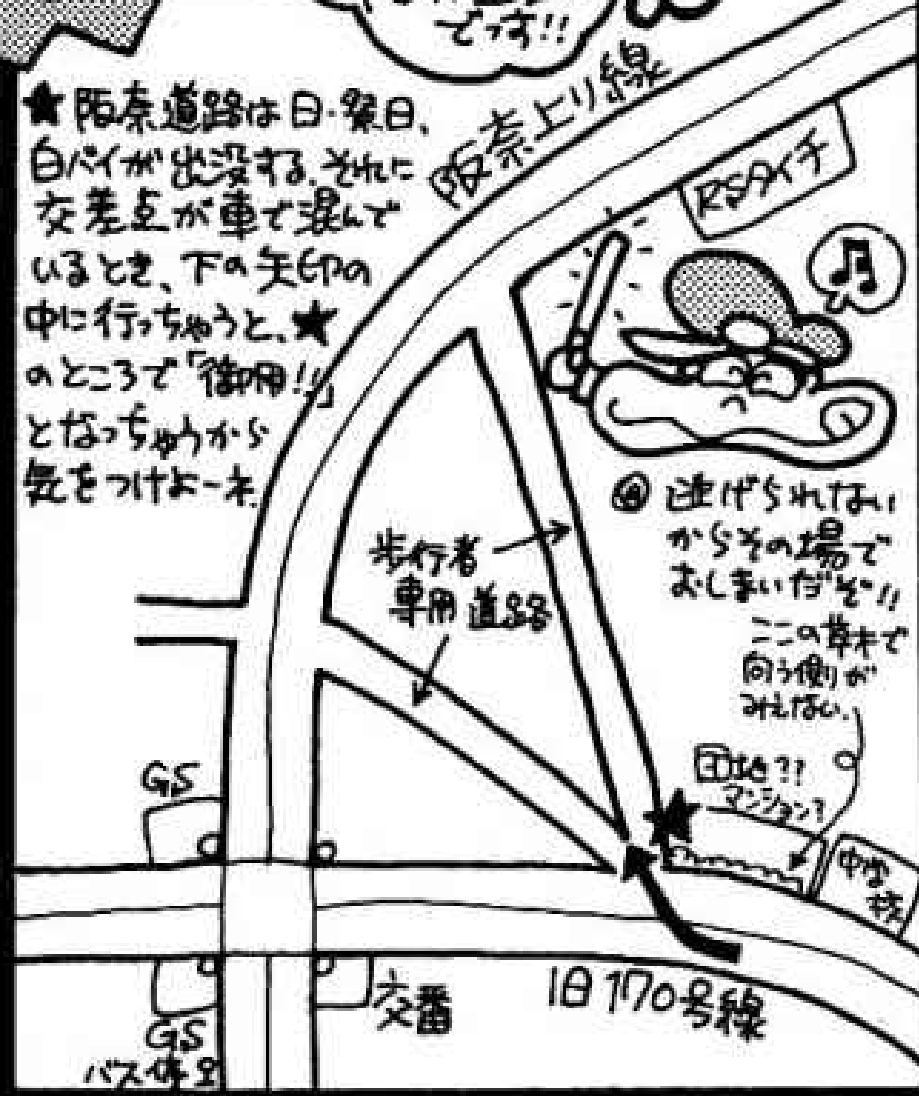 でっす!!
★阪奈道路は日・祭日、
白バイが出没する。それに
交差点が車で混んで
いるとき、下の矢印の
中に行っちゃうと、★
のところで「御用!!」
となっちゃうから
気をつけよーネ。
阪奈上り線
RSタイチ
逃げられない
からその場で
おしまいだぞ!!
歩行者
専用道路
ここの草木で
向う側が
みえない。
団地??
マンション?
中学
校
GS
交番
旧170号線
GS
バス停